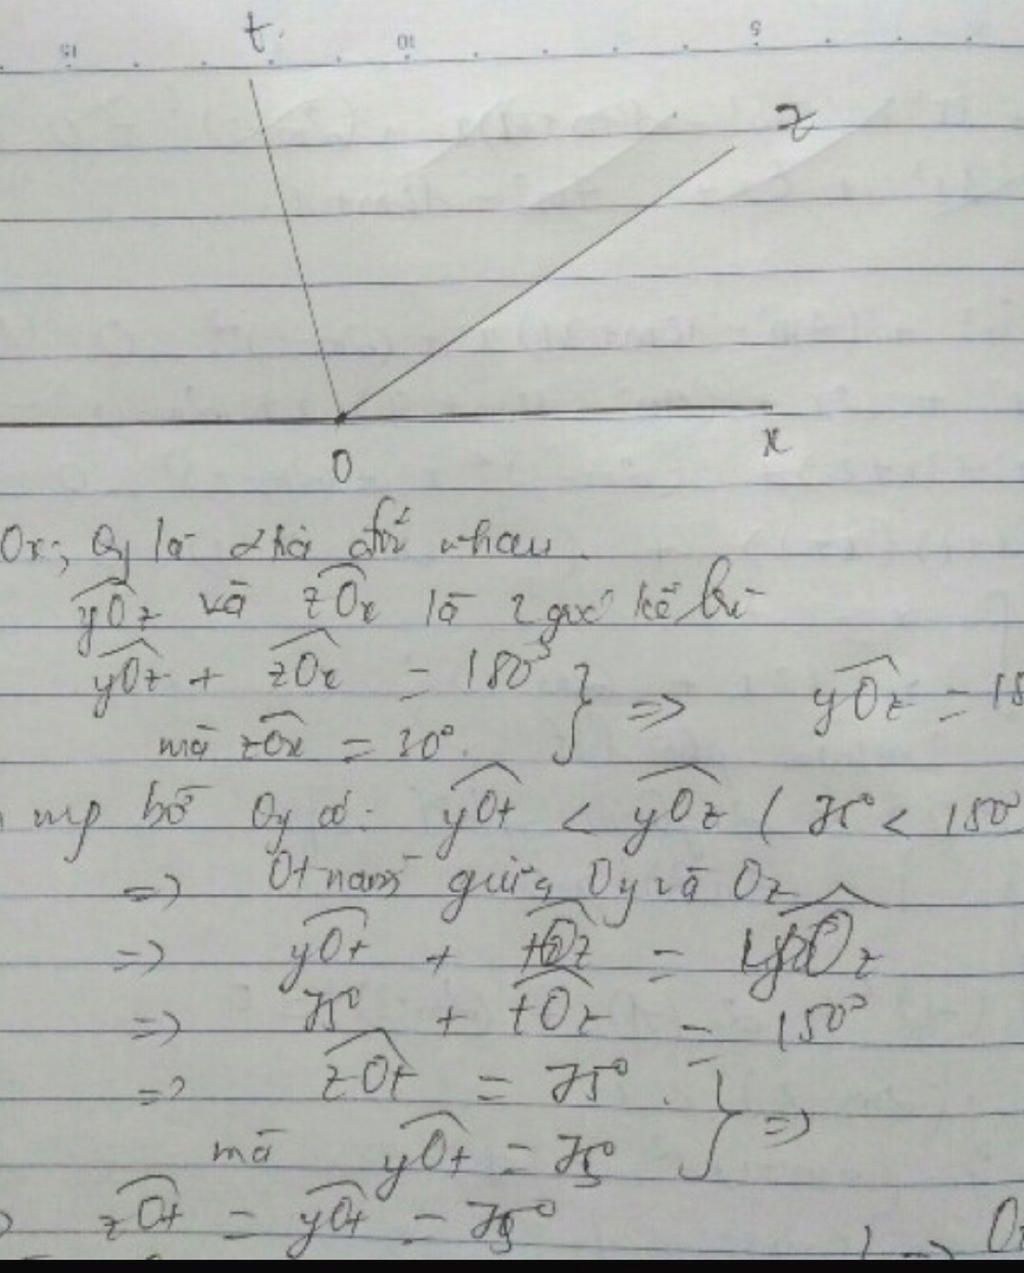 t
z
O
x
Ox, Oy là 2 tia đối nhau.
yOz và zOx là 2 góc kề bù
yOz + zOx = 180°
mà zOx = 30°. } => yOz = 18
mp bờ Oy có: yOt < yOz ( 75° < 150°
=> Ot nằm giữa Oy và Oz
=> yOt + tOz = yOz
=> 75° + tOz = 150°
=> zOt = 75°.
mà yOt = 75° } =>
zOt = yOt = 75°